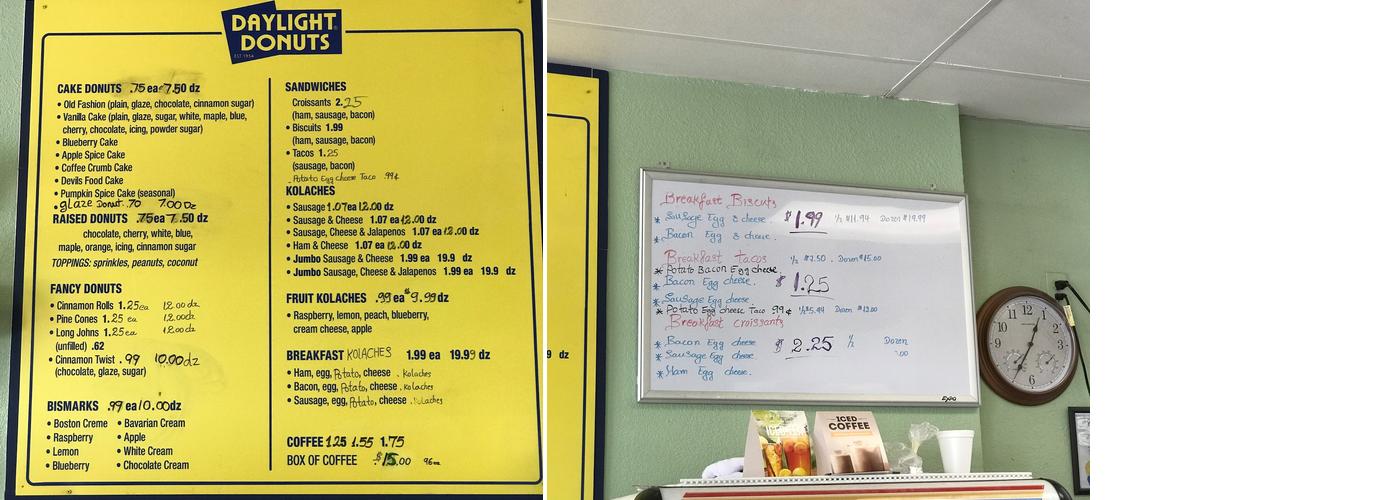 DAYLIGHT
DONUTS
EST. 1954
CAKE DONUTS .75 ea 7.50 dz
• Old Fashion (plain, glaze, chocolate, cinnamon sugar)
• Vanilla Cake (plain, glaze, sugar, white, maple, blue,
cherry, chocolate, icing, powder sugar)
• Blueberry Cake
• Apple Spice Cake
• Coffee Crumb Cake
• Devils Food Cake
• Pumpkin Spice Cake (seasonal)
• glaze Donut .70 7.00 Dz
RAISED DONUTS .75ea 7.50 dz
chocolate, cherry, white, blue,
maple, orange, icing, cinnamon sugar
TOPPINGS: sprinkles, peanuts, coconut
FANCY DONUTS
• Cinnamon Rolls 1.25ea 12.00 dz
• Pine Cones 1.25 ea 12.00dz
• Long Johns 1.25ea 12.00 dz
(unfilled) .62
• Cinnamon Twist .99 10.00dz
(chocolate, glaze, sugar)
BISMARKS .99 ea 10.00dz
• Boston Creme • Bavarian Cream
• Raspberry • Apple
• Lemon • White Cream
• Blueberry • Chocolate Cream
SANDWICHES
Croissants 2.25
(ham, sausage, bacon)
• Biscuits 1.99
(ham, sausage, bacon)
• Tacos 1.25
(sausage, bacon)
Potato Egg cheese Taco .99¢
KOLACHES
• Sausage 1.07ea 12.00 dz
• Sausage & Cheese 1.07 ea 12.00 dz
• Sausage, Cheese & Jalapenos 1.07 ea 12.00 dz
• Ham & Cheese 1.07 ea 12.00 dz
• Jumbo Sausage & Cheese 1.99 ea 19.9 dz
• Jumbo Sausage, Cheese & Jalapenos 1.99 ea 19.9 dz
FRUIT KOLACHES .99 ea $9.99 dz
• Raspberry, lemon, peach, blueberry,
cream cheese, apple
BREAKFAST KOLACHES 1.99 ea 19.99 dz
• Ham, egg, Potato, cheese . Kolaches
• Bacon, egg, Potato, cheese . Kolaches
• Sausage, egg, Potato, cheese . Kolaches
COFFEE 1.25 1.55 1.75
BOX OF COFFEE $15.00 96oz
9 dz
Breakfast Biscuts
* Sausage Egg & cheese $1.99 ½ $11.94 Dozen $19.99
* Bacon Egg & cheese.
Breakfast tacos ½ $7.50 . Dozen $15.00
* Potato Bacon Egg cheese
* Bacon Egg cheese $1.25
* Sausage Egg cheese
* Potato Egg cheese Taco .99¢ ½ $5.94 Dozen $12.00
Breakfast croissants
* Bacon Egg cheese $2.25 ½ Dozen
* Sausage Egg cheese .00
* Ham Egg cheese.
Expo
ICED
COFFEE
12 1 2 3 4 5 6 7 8 9 10 11